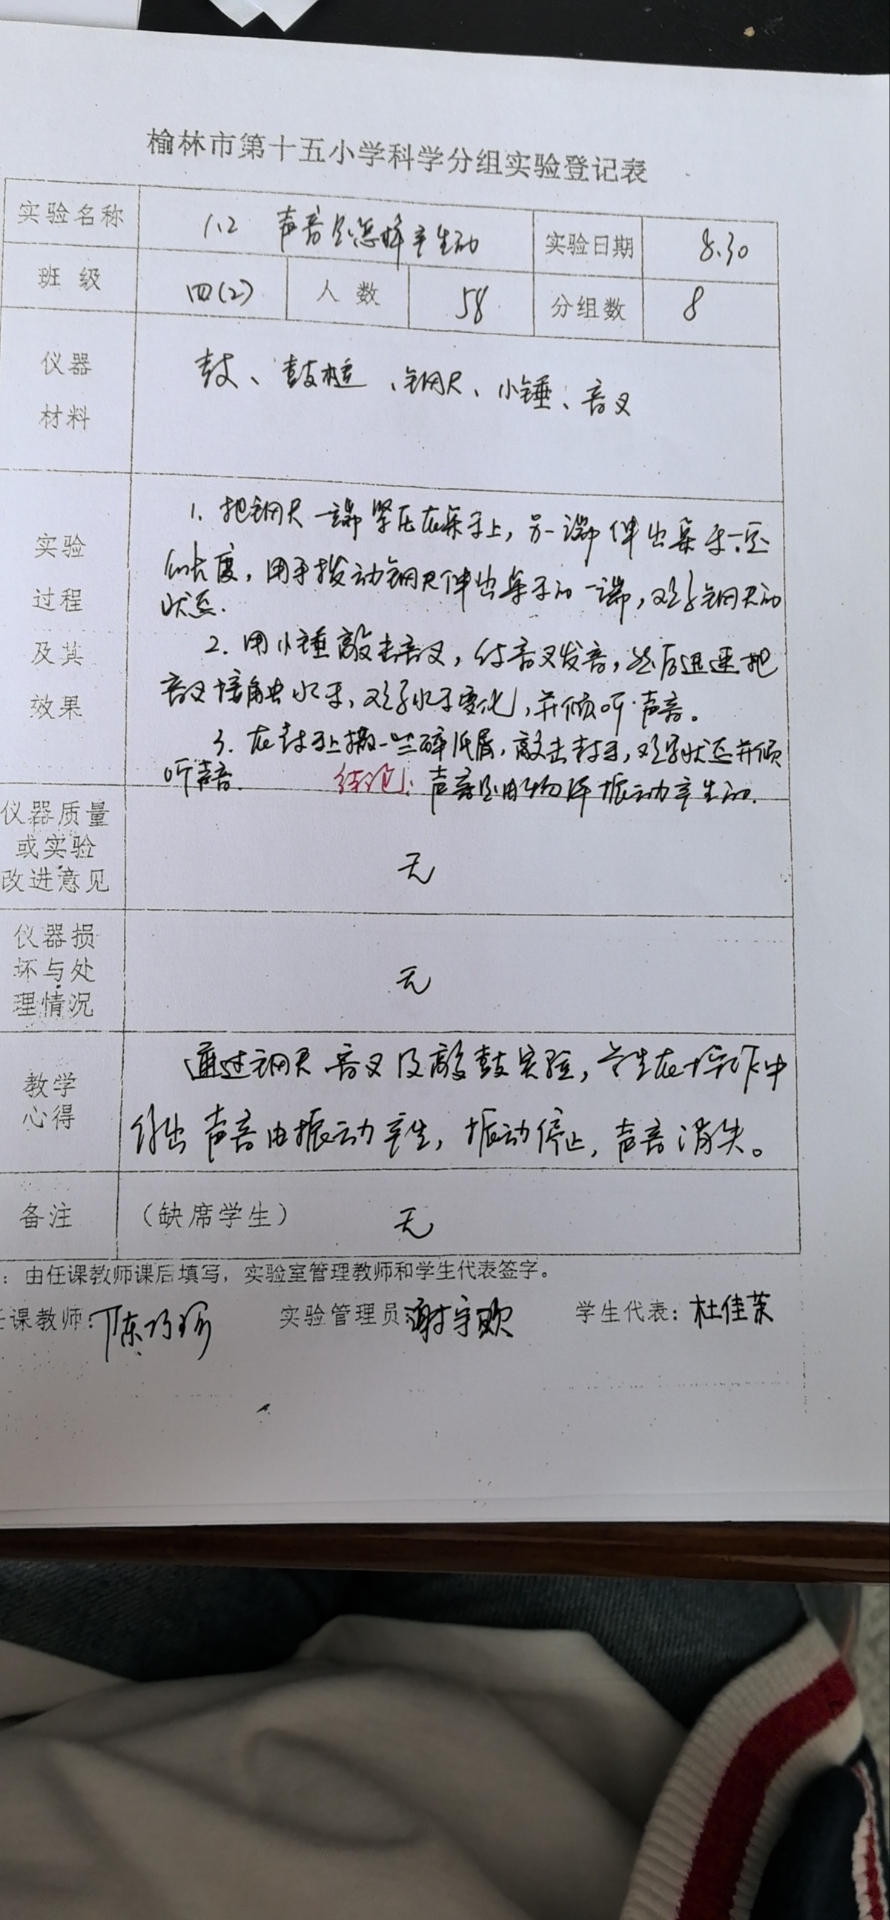 榆林市第十五小学科学分组实验登记表
实验名称 1.2 声音是怎样产生的 实验日期 8.30
班 级 四(2) 人 数 58 分组数 8
仪器
材料
鼓、鼓槌、钢尺、小锤、音叉
实验
过程
及其
效果
1. 把钢尺一端紧压在桌子上，另一端伸出桌子一定
的长度，用手拨动钢尺伸出桌子的一端，观察钢尺的
状态.
2. 用小锤敲击音叉，使音叉发音，然后迅速把
音叉接触水面，观察水面变化，并倾听声音。
3. 在鼓面上撒一些碎纸屑，敲击鼓面，观察状态并倾
听声音. 结论：声音是由物体振动产生的.
仪器质量
或实验
改进意见
无
仪器损
坏与处
理情况
无
教学
心得
通过钢尺、音叉及敲鼓实验，学生在操作中
得出声音由振动产生，振动停止，声音消失。
备注 （缺席学生） 无
：由任课教师课后填写，实验室管理教师和学生代表签字。
任课教师： 实验管理员： 学生代表：杜佳茉